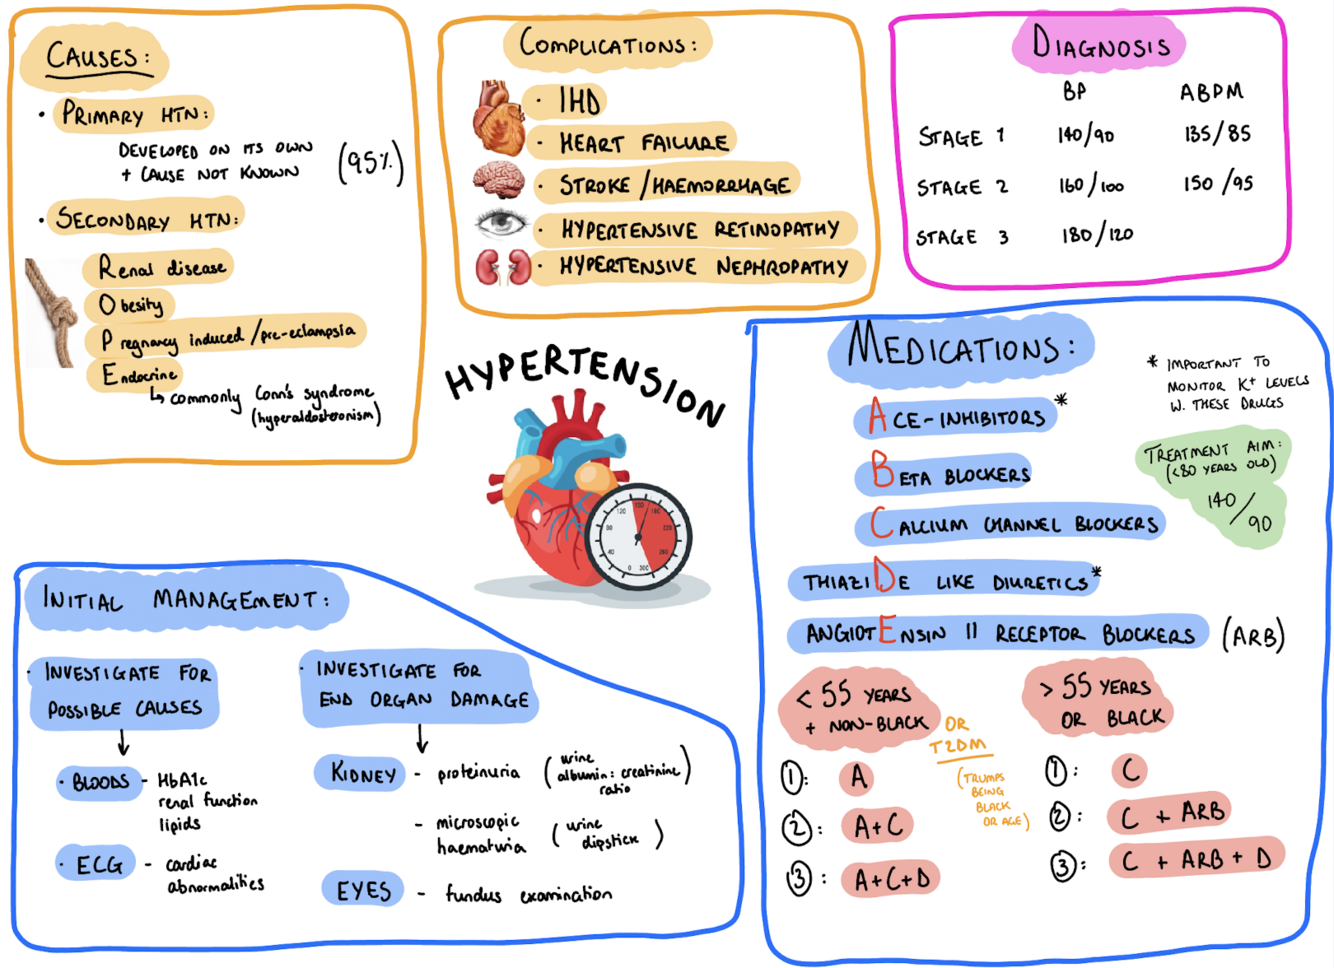 CAUSES:
• PRIMARY HTN:
DEVELOPED ON ITS OWN
+ CAUSE NOT KNOWN
(95%)
• SECONDARY HTN:
Renal disease
Obesity
Pregnancy induced/pre-eclampsia
Endocrine
↳ commonly Conn's syndrome
(hyperaldosteronism)
COMPLICATIONS:
• IHD
• HEART FAILURE
• STROKE/HAEMORRHAGE
• HYPERTENSIVE RETINOPATHY
• HYPERTENSIVE NEPHROPATHY
DIAGNOSIS
BP ABPM
STAGE 1 140/90 135/85
STAGE 2 160/100 150/95
STAGE 3 180/120
HYPERTENSION
INITIAL MANAGEMENT:
• INVESTIGATE FOR
POSSIBLE CAUSES
• BLOODS - HbA1c
renal function
lipids
• ECG - cardiac
abnormalities
• INVESTIGATE FOR
END ORGAN DAMAGE
KIDNEY - proteinuria (urine
albumin:creatinine
ratio)
- microscopic
haematuria (urine
dipstick)
EYES - fundus examination
MEDICATIONS:
* IMPORTANT TO
MONITOR K+ LEVELS
W. THESE DRUGS
ACE-INHIBITORS*
BETA BLOCKERS
CALCIUM CHANNEL BLOCKERS
THIAZIDE LIKE DIURETICS*
ANGIOTENSIN II RECEPTOR BLOCKERS (ARB)
TREATMENT AIM:
(<80 YEARS OLD)
140/90
< 55 YEARS
+ NON-BLACK
OR
T2DM
(TRUMPS
BEING
BLACK
OR AGE)
①: A
②: A+C
③: A+C+D
> 55 YEARS
OR BLACK
①: C
②: C + ARB
③: C + ARB + D